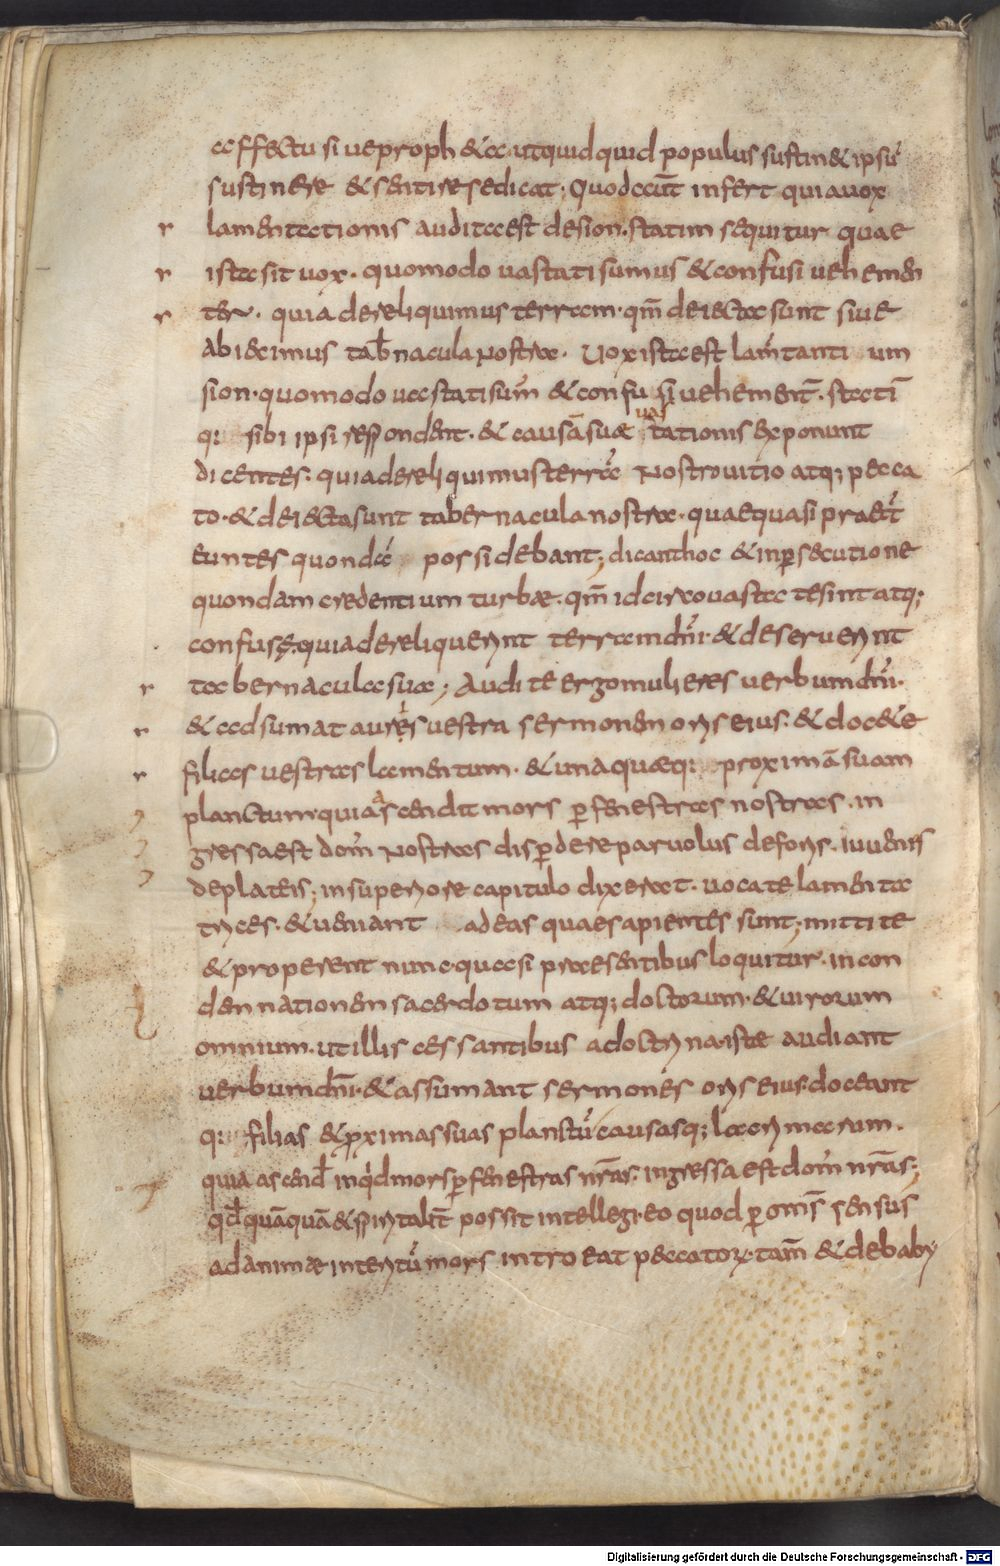 affectu siue proph&a ut quidquid populus sustin& ipsū
sustinere & sentire se dicat; Quod autē infert quia uox
lamentationis audita est de sion. statim sequitur quae
ista sit uox. quomodo uastati sumus & confusi uehemen
ter. quia dereliquimus terram. qm̄ deiecta sunt siue
abiecimus tab̄nacula nostra. Uox ista est lam̄tanti um
sion. quomodo uastati sum̄ & confu si uehement̄. statī
q: sibi ipsi respondent. & causā suae uastationis exponunt
dicentes: quia dereliquimus terrā nostro uitio atq; pecca
to. & deiecta sunt tabernacula nostra. quae quasi praet̄
euntes quondā possidebant; dicant hoc & in p̱secutione
quondam credentium turbae. qm̄ idcirco uastatae sint atq;
confusę. quia dereliquerunt terram dn̄i. & deseruerunt
tabernacula sua; Audite ergo mulieres uerbum dn̄i.
& adsumat aures uestra sermonem oris eius. & doc&e
filias uestras lamentum. & unaquaeq: proximā suam
planctum. quia ascendit mors p̱ fenestras nostras. in
gressa est dom̄ nostras disp̱dere paruolus deforis. iuuenis
de plateis; in superiore capitulo dixerat. uocate lamenta
trices. & ueniant ad eas quae sapientes sunt; mittite
& properent nunc quasi praesentibus loquitur. in con
demnationem sacerdotum atq; doctorum. & uirorum
omnium. ut illis cessantibus a doctrina. istae audiant
uerbum dn̄i. & assumant sermones oris eius. doceant
q: filias & p̱ximas suas planctū causasq; lacrimarum.
quia ascend̄ inq̇d mors p̱ fenestras nr̄as. ingressa est dom̄ nr̄as;
qd̄ quāquā & sp̄ritalit̄ possit intellegi. eo quod p̱ om̄s sensus
ad animae interitū mors introeat peccatorꝝ. tam̄ & de baby